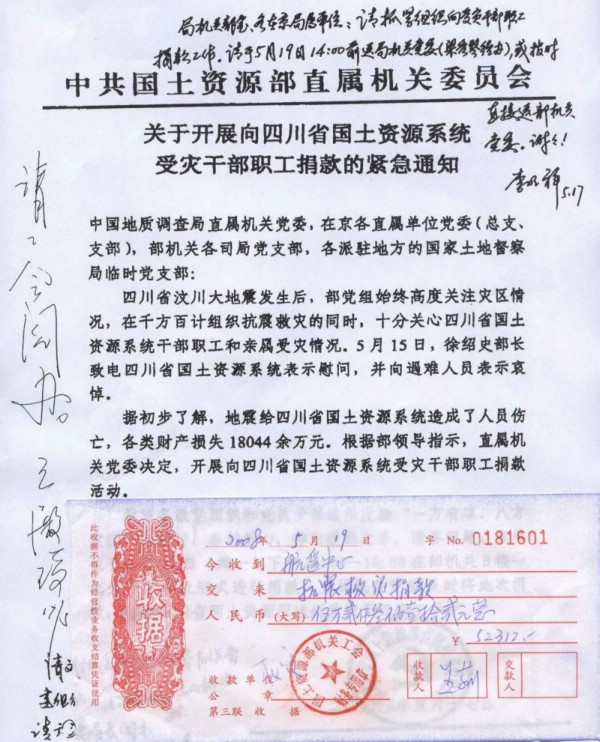 中共国土资源部直属机关委员会
关于开展向四川省国土资源系统
受灾干部职工捐款的紧急通知
5.17
中国地质调查局直属机关党委，在京各直属单位党委（总支、
支部），部机关各司局党支部，各派驻地方的国家土地督察
局临时党支部：
四川省汶川大地震发生后，部党组始终高度关注灾区情
况，在千方百计组织抗震救灾的同时，十分关心四川省国土
资源系统干部职工和亲属受灾情况。5月15日，徐绍史部长
致电四川省国土资源系统表示慰问，并向遇难人员表示哀
悼。
据初步了解，地震给四川省国土资源系统造成了人员伤
亡，各类财产损失18044余万元。根据部领导指示，直属机
关党委决定，开展向四川省国土资源系统受灾干部职工捐款
活动。
此收据不得作为经营性业务收支结算凭证使用
收据
2008年5月19日 字 No.0181601
今收到 航遥中心
交来 抗震救灾捐款
人民币(大写)伍万贰仟叁佰壹拾贰元整
￥52312.-
收款单位
公章
收款人
交款人
第三联 收据
国土资源部机关工会